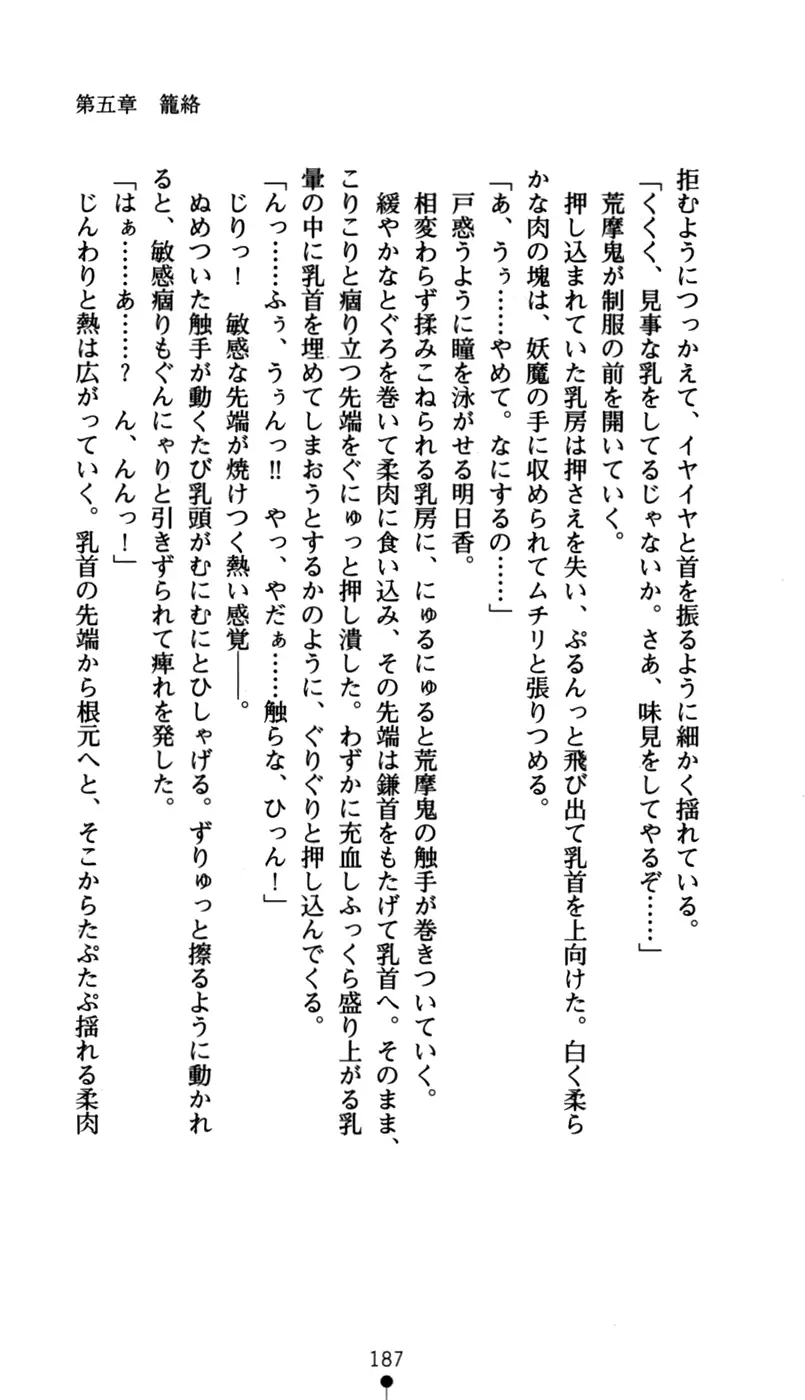 第五章　籠絡
拒むようにつっかえて、イヤイヤと首を振るように細かく揺れている。
「くくく、見事な乳をしてるじゃないか。さあ、味見をしてやるぞ……」
荒摩鬼が制服の前を開いていく。
押し込まれていた乳房は押さえを失い、ぷるんっと飛び出て乳首を上向けた。白く柔ら
かな肉の塊は、妖魔の手に収められてムチリと張りつめる。
「あ、うぅ……やめて。なにするの……」
戸惑うように瞳を泳がせる明日香。
相変わらず揉みこねられる乳房に、にゅるにゅると荒摩鬼の触手が巻きついていく。
緩やかなとぐろを巻いて柔肉に食い込み、その先端は鎌首をもたげて乳首へ。そのまま、
こりこりと痼り立つ先端をぐにゅっと押し潰した。わずかに充血しふっくら盛り上がる乳
暈の中に乳首を埋めてしまおうとするかのように、ぐりぐりと押し込んでくる。
「んっ……ふぅ、うぅんっ‼　やっ、やだぁ……触らな、ひっん！」
じりっ！　敏感な先端が焼けつく熱い感覚――。
ぬめついた触手が動くたび乳頭がむにむにとひしゃげる。ずりゅっと擦るように動かれ
ると、敏感痼りもぐんにゃりと引きずられて痺れを発した。
「はぁ……あ……？　ん、んんっ！」
じんわりと熱は広がっていく。乳首の先端から根元へと、そこからたぷたぷ揺れる柔肉
187